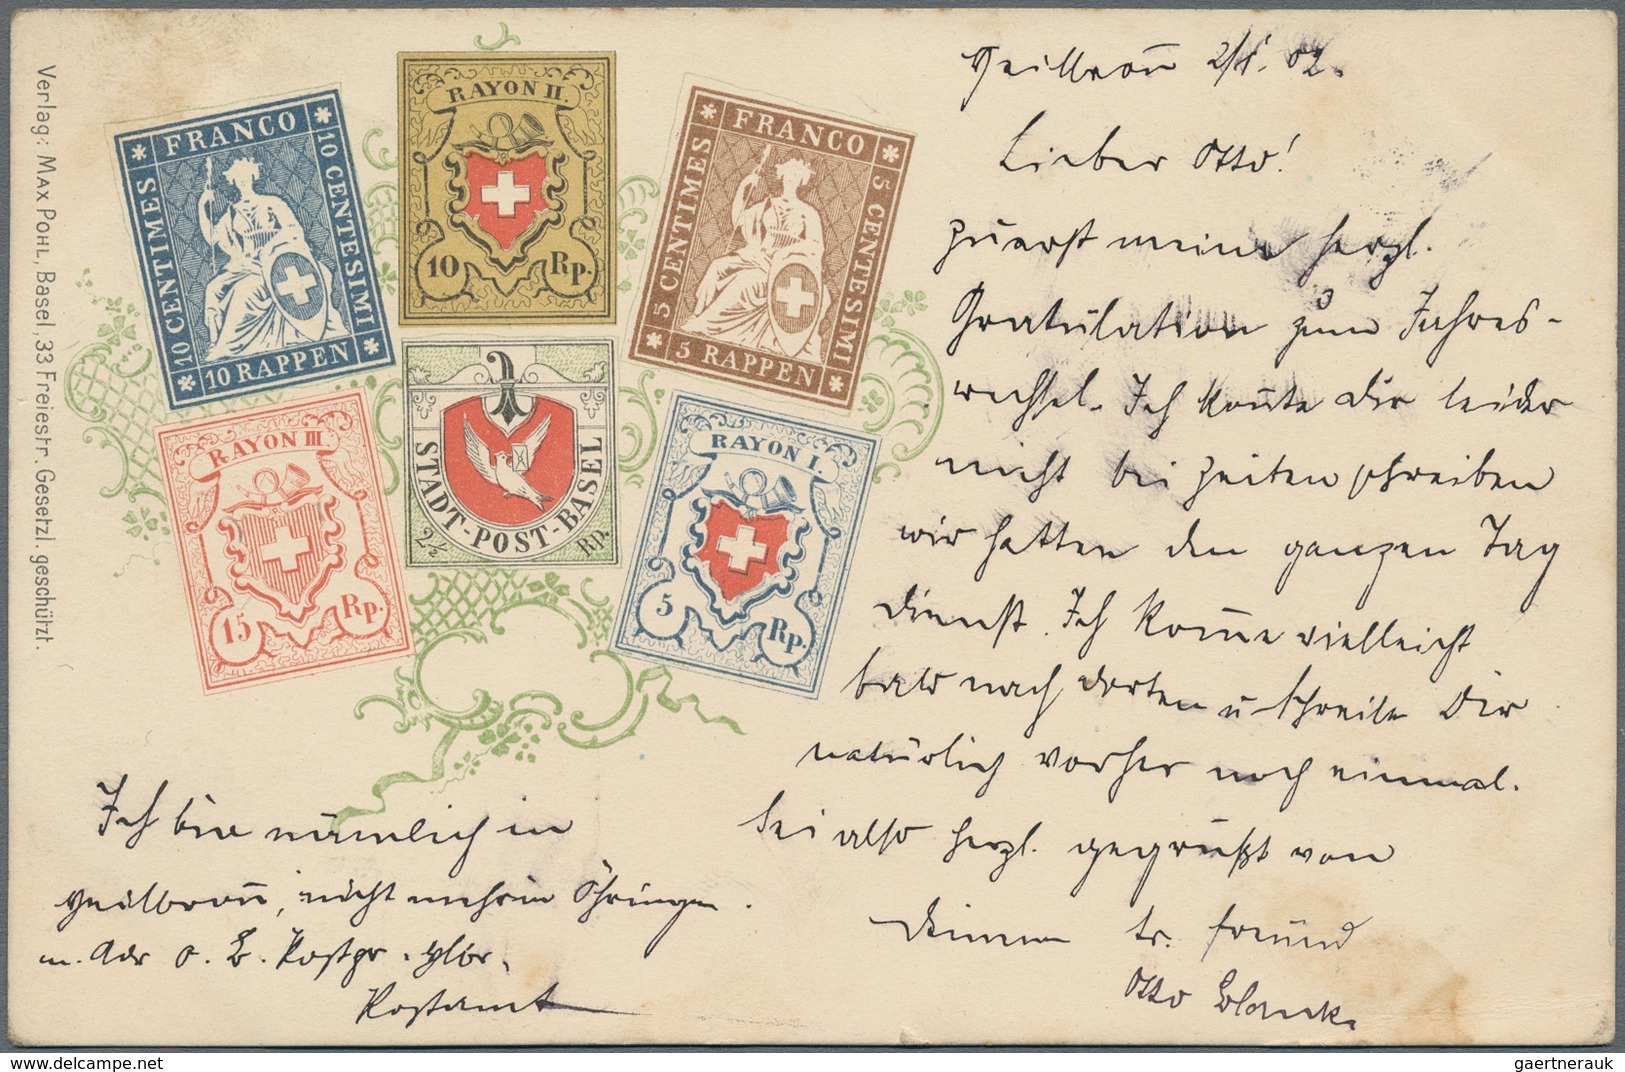 Verlag: Max Pohl, Basel, 33 Freiestr. Gesetzl. geschützt.
FRANCO
10 CENTESIMI
10 RAPPEN
10 CENTIMES
RAYON II.
10 Rp.
FRANCO
5 CENTESIMI
5 RAPPEN
5 CENTIMES
RAYON III
15 Rp.
STADT-POST-BASEL
2½ Rp.
RAYON I.
5 Rp.
Heilbronn 2/1. 02.
Lieber Otto!
Zuerst meine herzl.
Gratulation zum Jahres-
wechsel. Ich konnte Dir leider
nicht bei Zeiten schreiben
wir hatten den ganzen Tag
Dienst. Ich komme vielleicht
bald nach dorten u. schreibe Dir
natürlich vorher noch einmal.
Sei also herzl. gegrüßt von
Deinem tr. Freund
Otto
Ich bin nämlich in
Heilbronn, nicht mehr in Öhringen.
m. Adr. O. B. Postpr. Hlbr.
Postamt
Delcampe.net
gaertnerauk